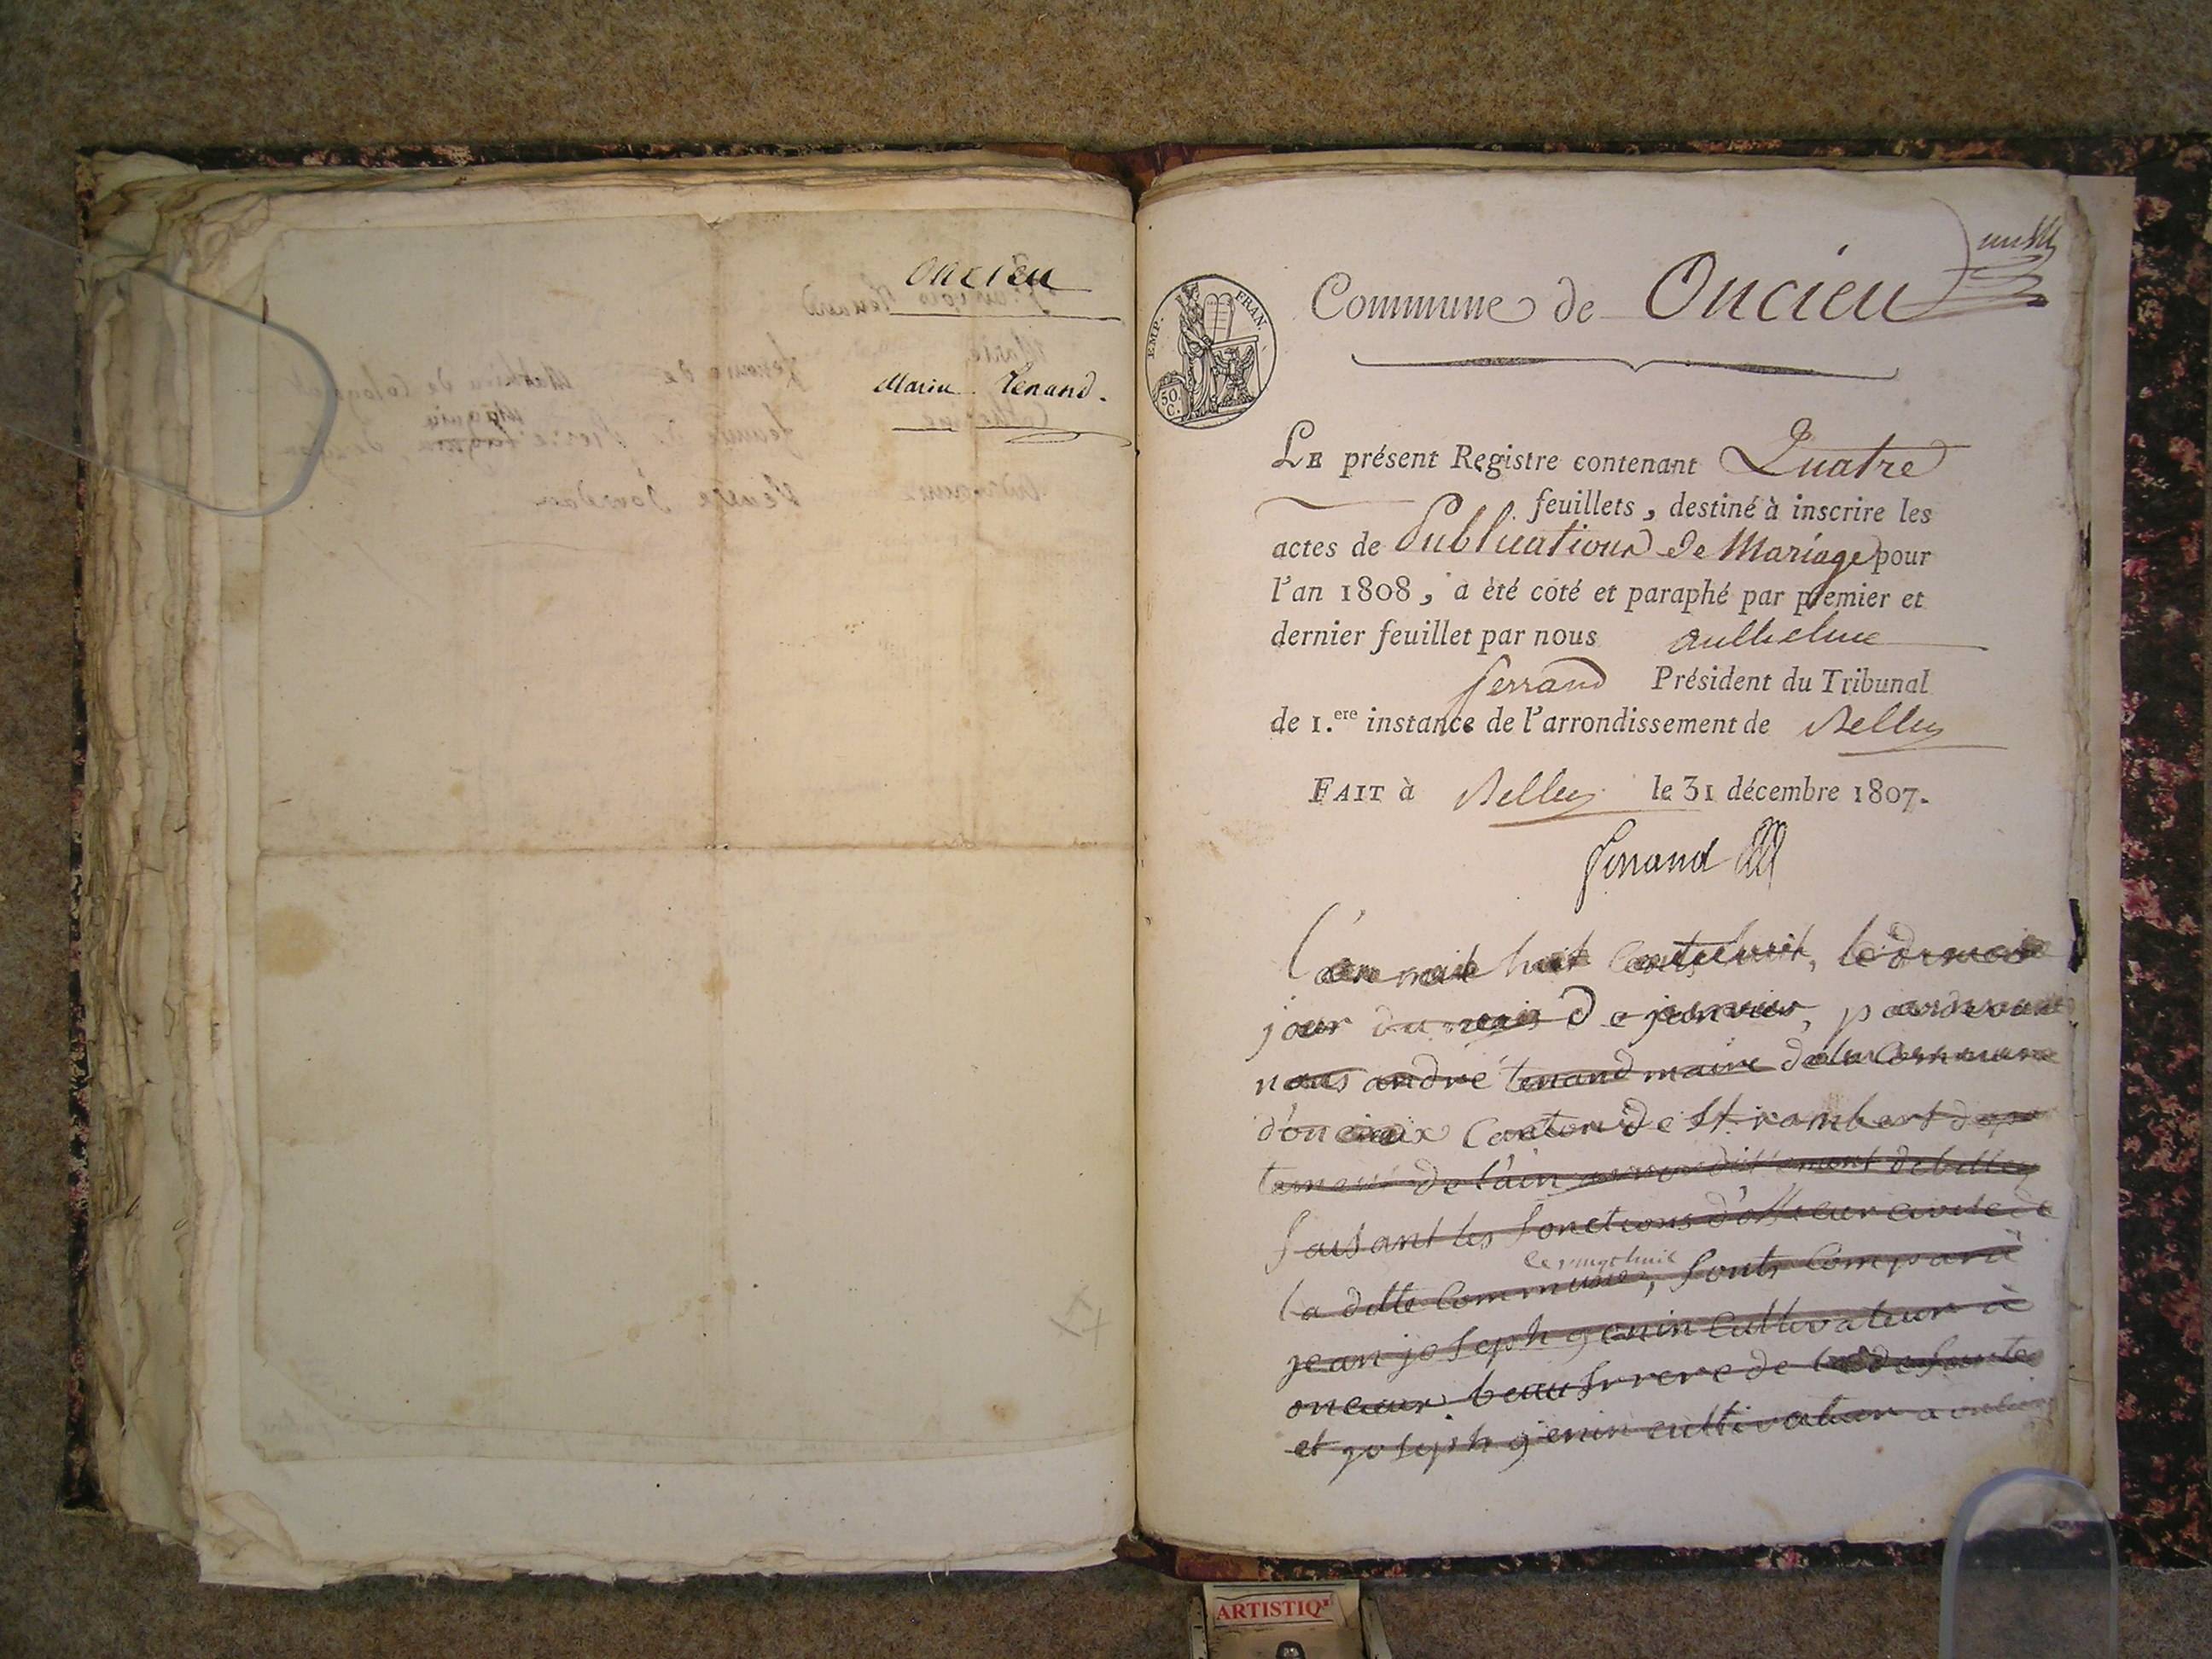 Oncieu
Maria Tenand.
un
EMP. FRAN.
50. C.
Commune de Oncieu
LE présent Registre contenant Quatre
feuillets, destiné à inscrire les
actes de Publications de Mariage pour
l'an 1808, a été coté et paraphé par premier et
dernier feuillet par nous Anthelme
ferrand Président du Tribunal
de 1.ere instance de l'arrondissement de Belley
FAIT à Belley le 31 décembre 1807.
ferrand
L'an mil huit Cents huit, le
jour du mois De janvier, pardevant
nous andré tenand maire dela Commune
d'oncieux Canton de St. rambert dep
tement de l'ain arrondissement de belley
faisant les fonctions d'officier civile de
le vingt huit
la ditte Commune, sonts Comparû
jean joseph genin Cultivateur à
oncieux beaufrrere de la defunte
et joseph genin cultivateur a oncieu
ARTISTIQ